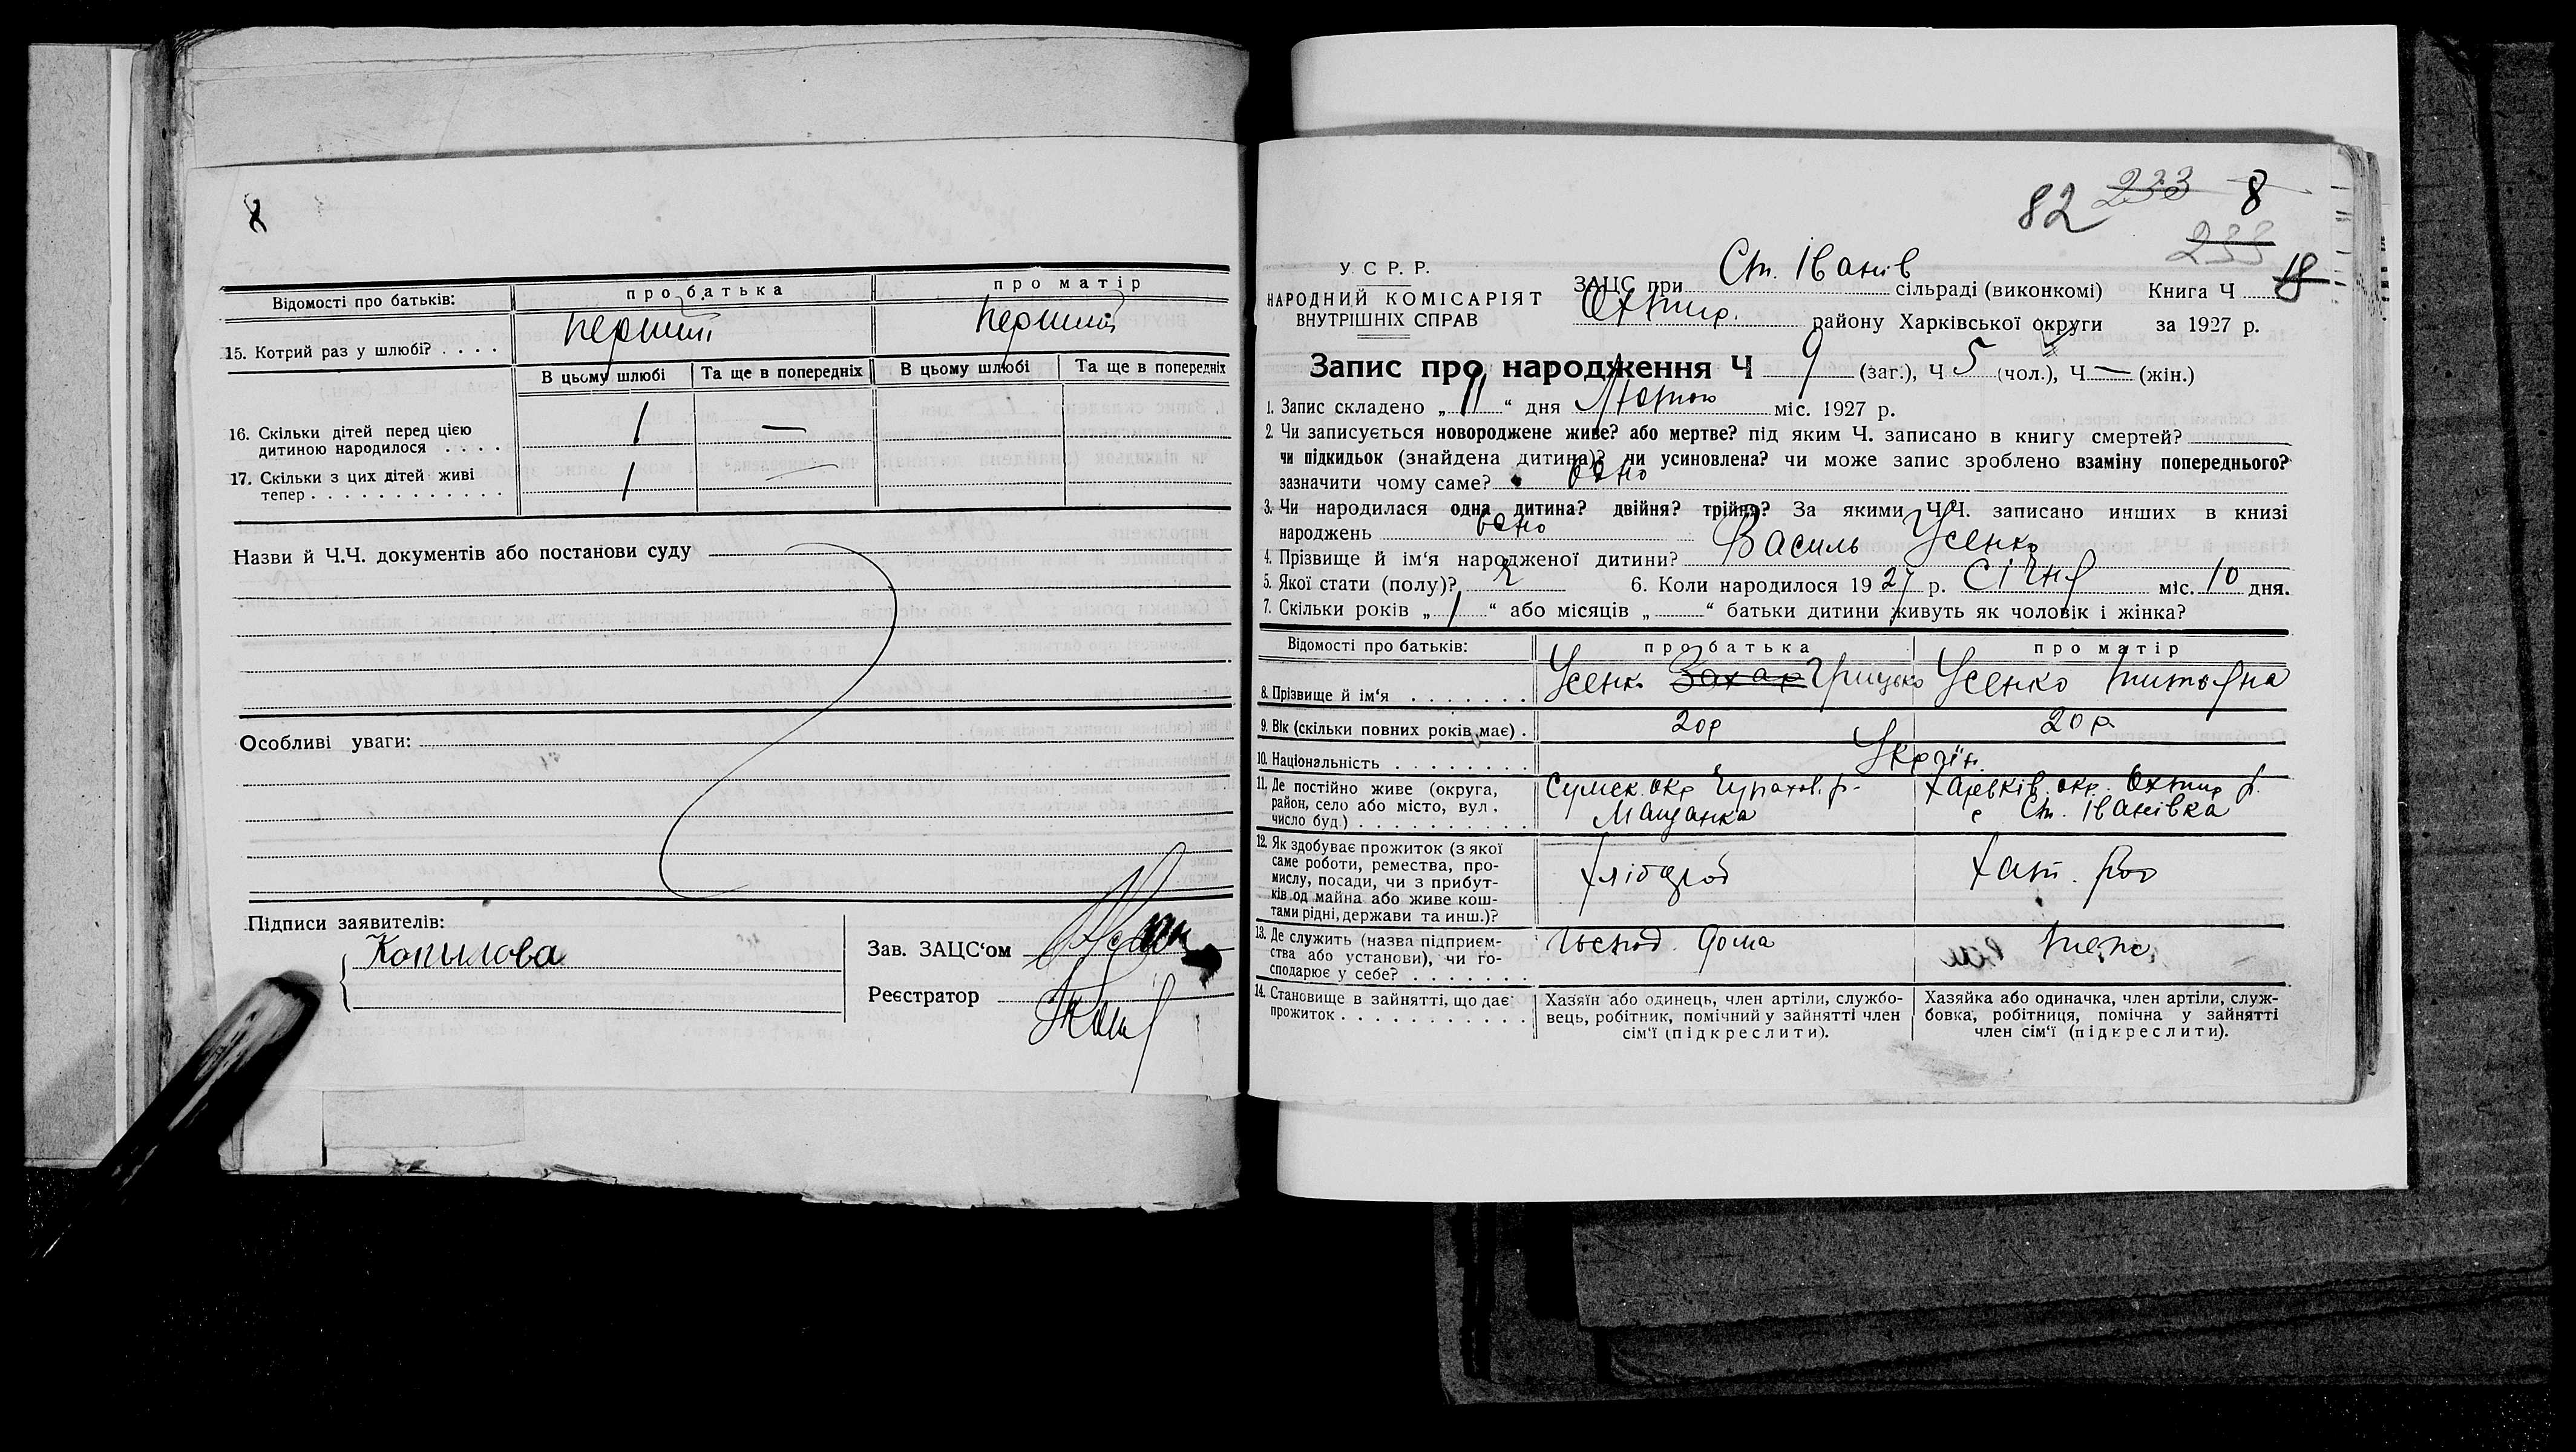 8
Відомості про батьків: про батька про матір
15. Котрий раз у шлюбі? . . . . перший перший
В цьому шлюбі Та ще в попередніх В цьому шлюбі Та ще в попередніх
16. Скільки дітей перед цією
дитиною народилося . . . . 1 —
17. Скільки з цих дітей живі
тепер . . . . . . . . . . . . 1 —
Назви й Ч.Ч. документів або постанови суду
Особливі уваги:
Підписи заявителів:
Копылова
Зав. ЗАЦС'ом
Реєстратор
82 233 8
233
У. С. Р. Р.
НАРОДНИЙ КОМІСАРІЯТ
ВНУТРІШНІХ СПРАВ
ЗАЦС при Ст. Іванів сільраді (виконкомі) Книга Ч 18
Охтир. району Харківської округи за 1927 р.
Запис про народження Ч 9 (заг.), Ч 5 (чол.), Ч — (жін.)
1. Запис складено „ 11 “ дня Лютого міс. 1927 р.
2. Чи записується новороджене живе? або мертве? під яким Ч. записано в книгу смертей?
чи підкидьок (знайдена дитина)? чи усиновлена? чи може запис зроблено взаміну попереднього?
зазначити чому саме? одно
3. Чи народилася одна дитина? двійня? трійня? За якими Ч.Ч. записано инших в книзі
народжень одно
4. Прізвище й ім'я народженої дитини? Василь Усенко
5. Якої стати (полу)? ч 6. Коли народилося 1927 р. Січня міс. 10 дня.
7. Скільки років „ 1 “ або місяців „ “ батьки дитини живуть як чоловік і жінка?
Відомості про батьків: про батька про матір
8. Прізвище й ім'я . . . . . . . Усенко Захар Грицько Усенко
9. Вік (скільки повних років має) . 20р 20р
10. Національність . . . . . . . . Україн.
11. Де постійно живе (округа,
район, село або місто, вул.
число буд.) . . . . . . . . . . .
Сумск. окр р-
Мащанка
Харьків. окр. Охтир р.
с Ст. Іванівка
12. Як здобуває прожиток (з якої
саме роботи, ремества, про-
мислу, посади, чи з прибут-
ків од майна або живе кош-
тами рідні, держави та инш.)?
хлібороб
хат. роб
13. Де служить (назва підприєм-
ства або установи), чи го-
сподарює у себе? . . . . . . .
господ. дома
14. Становище в зайнятті, що дає
прожиток . . . . . . . . . . .
Хазяїн або одинець, член артіли, службо-
вець, робітник, помічний у зайнятті член
сім'ї (підкреслити).
Хазяйка або одиначка, член артіли, служ-
бовка, робітниця, помічна у зайнятті
член сім'ї (підкреслити).